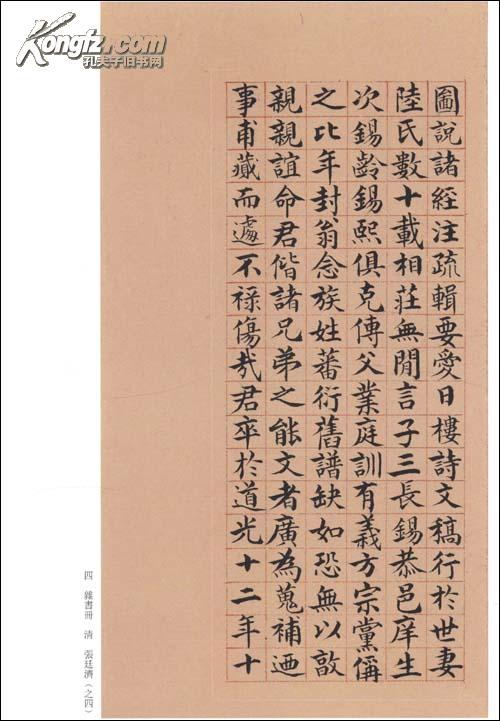 圖說諸經注疏輯要愛日樓詩文稿行於世妻
陸氏數十載相莊無閒言子三長錫恭邑庠生
次錫齡錫熙俱克傳父業庭訓有義方宗黨偁
之比年封翁念族姓蕃衍舊譜缺如恐無以敦
親親誼命君偕諸兄弟之能文者廣為蒐補迺
事甫蕆而遽不祿傷哉君卒於道光十二年十
四 雜書冊 清 張廷濟(之四)
Kongfz.com
孔夫子旧书网